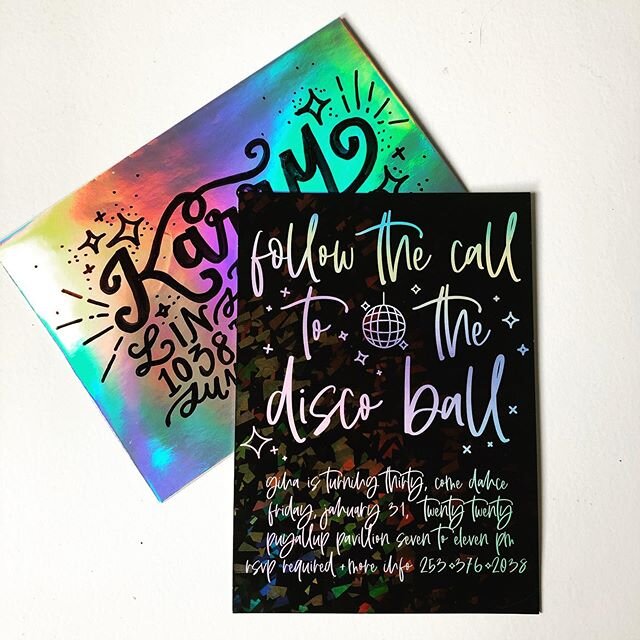 follow the call
to the
disco ball
gina is turning thirty, come dance
friday, january 31, twenty twenty
puyallup pavillion seven to eleven pm
rsvp required + more info 253⋄376⋄2038